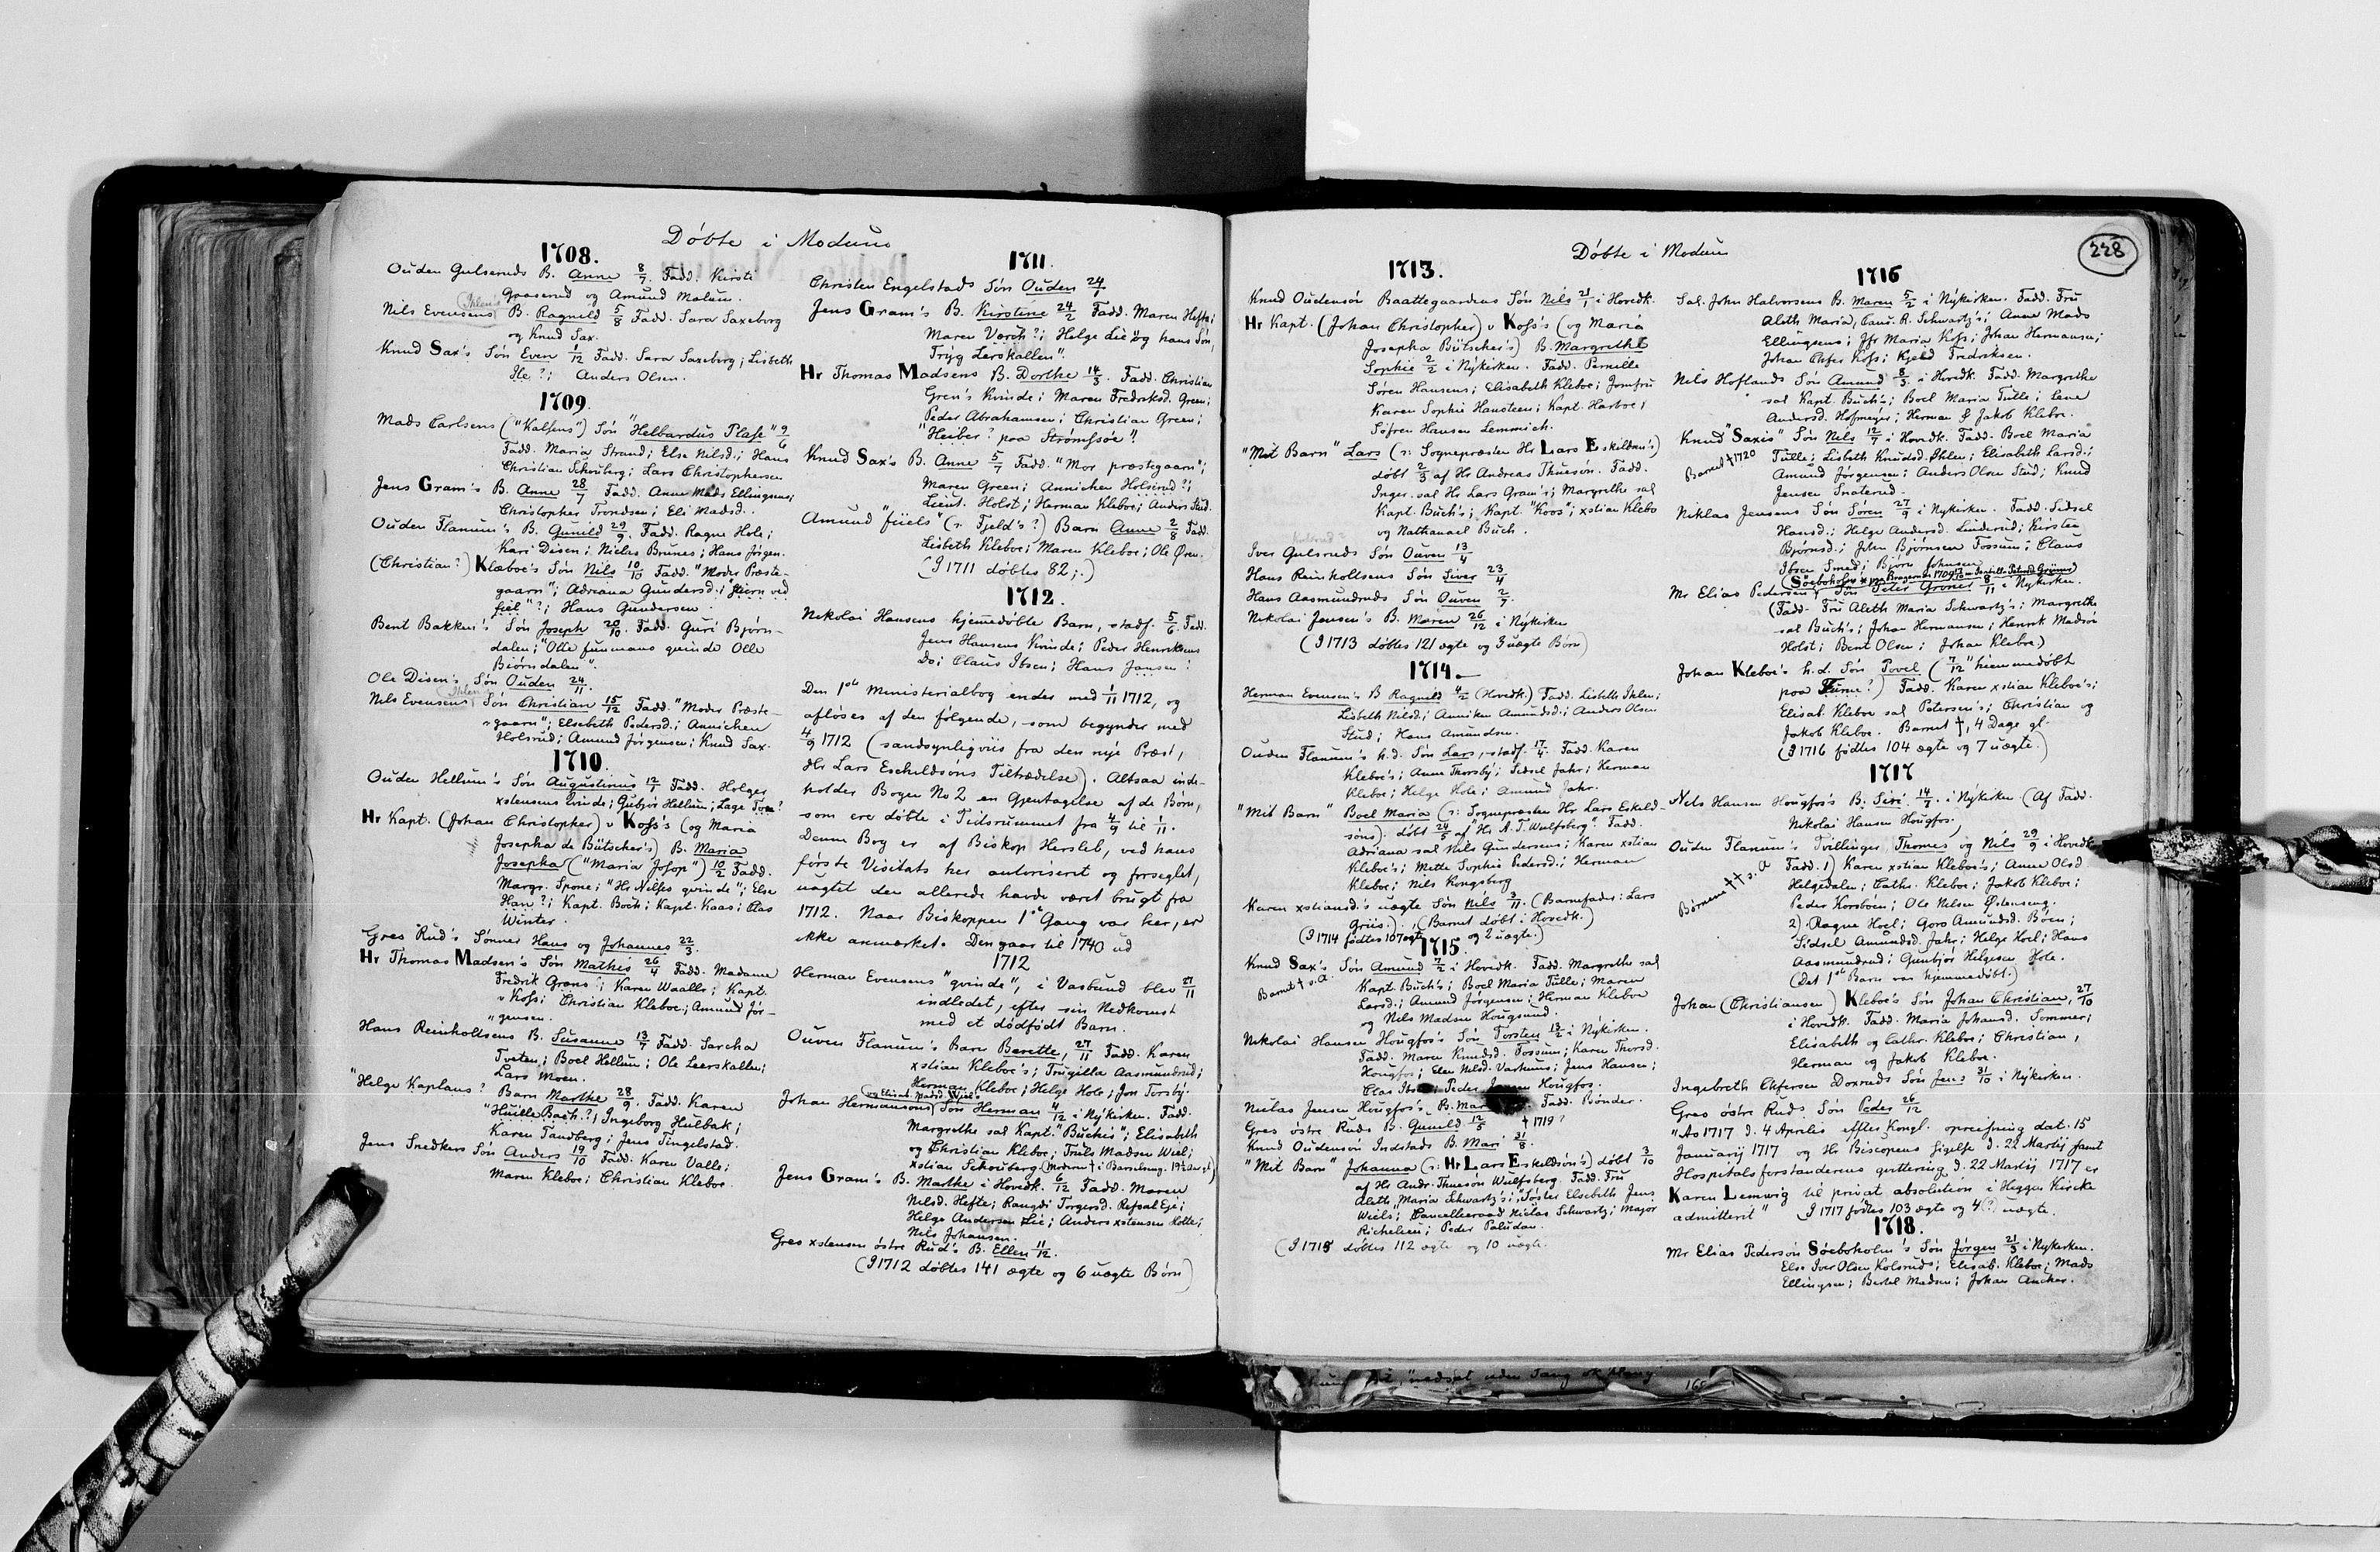 Døbte i Modum
1708.
Ouden Gulseruds B. Anne 8/7. Fadd. Kirsti
Gaaserud og Amund Molum.
Ihlen's
Nils Evensens B. Ragnild 5/8 Fadd. Sara Saxeborg
og Knud Sax.
Knud Sax's Søn Even 1/12 Fadd. Sara Saxeberg; Lisbeth
Ile?; Anders Olsen.
1709.
Mads Carlsens ("Kalsens") Søn "Helbardus Plase" 9/6
Fadd. Maria Strand; Else Nilsd.; Hans
Christian Schouberg; Lars Christophersen
Jens Gram's B. Anne 28/7 Fadd. Anne Mads Ellingsens;
Christopher Trondsen; Eli Madsd..
Ouden Flanum's B. Gunild 29/9. Fadd. Ragne Hole;
Kari Disen; Nicles Brunes; Hans Jørgen.
(Christian?) Klæboe's Søn Nils 10/10 Fadd. "Moder Præste-
gaarn"; Adriana Gundersd.; "Jiern ved
fiel"?; Hans Gundersen.
Bent Bakken's Søn Joseph 20/10. Fadd. Guri Bjørn-
dalen; "Olle funmans qvinde Olle
Biørndalen".
Ole Disen's Søn Ouden 24/11.
Ihlen
Nils Evensens Søn Christian 15/12 Fadd. "Moder Præste-
gaarn"; Elsebeth Pedersd.; Annichen
Holsrud; Amund Jørgensen; Knud Sax.
1710.
Ouden Hellum's Søn Augustinus 12/1 Fadd. Holger
xstensens qvinde; Gubjør Hellum; Lage Toen?
Hr Kapt. (Johan Christopher) v Koss's (og Maria
Josepha de Bütscher's) B. Maria
Josepha ("Maria Josop") 10/2 Fadd.
Margr. Spone; "Hr Nilses qvinde"; Else
Han?; Kapt. Boch; Kapt. Kaas; Clas
Winter.
Gres Rud's Sønner Hans og Johannes 22/3.
Hr Thomas Madsen's Søn Mathis 26/4 Fadd. Madame
Fredrik Grøns; Karen Waalle; Kapt.
v Koss; Christian Kleboe; Amund Jør-
gensen.
Hans Reinholtsens B. Susanne 13/7 Fadd. Sarcha
Tveten; Boel Hellum; Ole Leerskallen;
Lars Moen.
"Helge Kaplans? Barn Marthe 28/9. Fadd. Karen
"Huille Bach"?; Ingeborg Hulbak;
Karen Tandberg; Jens Tingelstad.
Jens Snedkers Søn Anders 19/10 Fadd. Karen Valle;
Maren Kleboe; Christian Kleboe.
1711.
Christen Engelstads Søn Ouden 24/1
Jens Gram's B. Kirstine 24/2 Fadd. Maren Hefte;
Maren Vorch?; Helge Lie "og hans Søn,
Tryg Lerskallen".
Hr Thomas Madsens B. Dorthe 14/3. Fadd. Christian
Gren's Kvinde; Maren Fredriksd. Green;
Peder Abrahamsen; Christian Green;
"Heiber? paa Strømsøe"?
Knud Sax's B. Anne 5/7 Fadd. "Mor præstegaarn";
Maren Green; Annichen Holsirud?;
Lieut. Holst; Herman Kleboe; Anders Stud.
Amund "fiiels" (ɔ: Fjeld's?) Barn Anne 2/8 Fadd.
Lisbeth Kleboe; Maren Kleboe; Ole Øren.
(I 1711 døbtes 82;.)
1712.
Nikolai Hansens hjemmedøbte Barn, stadf. 5/6. Fadd.
Jens Hansens Kvinde; Peder Henriksens
Do; Claus Ibsen; Hans Jansen!
Den 1ste Ministerialbog ender med 1/11 1712, og
afløses af den følgende, som begynder med
4/9 1712 (sandsynligviis fra den nye Præst,
Hr Lars Eschildsøns Tiltrædelse). Altsaa inde-
holder Bogen No 2 en Gjentagelse af de Børn,
som ere døbte i Tidsrummet fra 4/9 til 1/11.
Denne Bog er af Biskop Hersleb, ved hans
første Visitats her autoriseret og forseglet,
uagtet den allerede havde været brugt fra
1712. Naar Biskoppen 1ste Gang var her, er
ikke anmærket. Den gaar til 1740 ud
1712
Herman Evensens "qvinde", i Vasbund blev 27/11
indledet, efter sin Nedkomst
med et dødfødt Barn.
Ouven Flanum's Barn Berette, 27/11 Fadd. Karen
xstian Kleboe's; Trugille Aasmundrud;
Herman Kleboe; Helge Hole; Jon Torsby.
og Elisab. Madsd. Wiel's
Johan Hermansøns Søn Herman 4/12 i Nykirken. Fadd.
Margrethe sal Kapt. "Buchis"; Elisabeth
og Christian Kleboe; Truls Madsen Wiel;
xstian Schouberg (Modren † i Barselseng. 19¼ Aar gl.)
Jens Gram's B. Marthe i Hovedk. 6/12 Fadd. Maren
Nilsd. Hefte; Rangdi Torgersd. Refsal Eje;
Helge Andersen Lie; Anders xstensen Kolle;
Nils Johansen.
Gres xstensen østre Rud's B. Ellen 11/12.
(I 1712 døbtes 141 ægte og 6 uægte Børn)
Døbte i Modum
228
1713.
Knud Oudensøn Baattegaardens Søn Nils 21/1 i Hovedk.
Hr Kapt. (Johan Christopher) v Koss's (og Maria
Josepha Bütscher's) B. Margrethe
Sophie 2/2 i Nykirken. Fadd. Pernille
Søren Hansens; Elisabeth Kleboe; Jomfru
Karen Sophie Hansteen; Kapt. Harboe;
Søfren Hansen Lemmich.
"Mit Barn" Lars (ɔ: Sognepræsten Hr Lars Eskildsen's)
døbt 2/3 af Hr Andreas Thuesøn. Fadd.
Inger sal Hr Lars Gram's; Margrethe sal
Kapt. Buch's; Kapt. "Koos"; xstian Klebo
og Nathanael Buch.
Iver Gulsruds Søn Ouven 13/4
Hans Reinholtsens Søn Siver 23/4
Hans Aasmundruds Søn Ouven 2/7.
Nikolai Jensen's B. Maren 26/12 i Nykirken
(I 1713 døbtes 121 ægte og 3 uægte Børn)
1714.
Herman Evensen's B Ragnild 4/2 (Hovedk.) Fadd. Lisbeth Ihlen;
Lisbeth Nilsd.; Anniken Amundsd.; Anders Olsen
Stud; Hans Amundsen.
Ouden Flanum's h.d. Søn Lars, stadf. 17/4. Fadd. Karen
Kleboe's; Anne Thorsby; Sidsel Jahr; Herman
Kleboe; Helge Hole; Amund Jahr.
"Mit Barn" Boel Maria (ɔ: Sognepræsten Hr Lars Eskild-
søns). døbt 24/5 af "Hr A. T. Wulfsberg". Fadd.
Adriana sal Nils Gundersens; Karen xstian
Kleboe's; Mette Sophie Pedersd.; Herman
Kleboe; Nils Kongsberg
Karen xstiansd.'s uægte Søn Nils 3/11. (Barnefader: Lars
Griis.). (Barnet døbt i Hovedk.)
(I 1714 fødtes 107 ægte og 2 uægte.)
1715.
Knud Sax's Søn Amund 7/2 i Hovedk. Fadd. Margrethe sal
Barnet † s.A.
Kapt. Buch's; Boel Maria Tulle; Maren
Larsd.; Amund Jørgensen; Herman Kleboe
og Nils Madsen Hougsund.
Nikolai Hansen Hougfos's Søn Torsten 13/2 i Nykirken.
Fadd. Maren Knudsd. Fossum; Karen Thorsd.
Hougfos; Elen Nilsd. Varhuus; Jens Hansen;
Clas; Peder Hougfos.
Niclas Jensen Hougfos's B. Mar Fadd. Bønder.
Gres østre Ruds B. Gunild 12/5 † 1719?
Knud Oudensøn Indstads B. Mari 31/8.
"Mit Barn" Johanna (ɔ: Hr Lars Eskeldsøn's) døbt 3/10
af Hr Andr. Thuesøn Wulfsberg. Fadd. Fru
Aleth Maria Schwartz's; "Søster Elsebeth Jens
Wiels"; Cancelieraad Niclas Schwartz; Major
Richelieu; Peder Paludan.
(I 1715 døbtes 112 ægte og 10 uægte.
1716
Sal. John Halvorsens B. Maren 5/2 i Nykirken. Fadd. Fru
Aleth Maria, Canc. R. Schwartz's; Anne Mads
Ellingsens; Jfr Maria Koss; Johan Hermansen;
Johan Chfer Koss; Kjeld Fredriksen.
Nils Hoflands Søn Amund 8/3 i Hovedk. Fadd. Margrethe
sal Kapt. Buch's; Boel Maria Tulle; Lene
Andersd. Hofmeyer; Herman & Jakob Kleboe.
Knud "Saxis" Søn Nils 12/7 i Hovedk. Fadd. Boel Maria
Barnet † 1720
Tulle; Lisbeth Knudsd. Ihlen; Elisabeth Larsd.;
Amund Jørgensen; Anders Olsen Stud; Knud
Jensen Snaterud.
Niklas Jensens Søn Søren 27/9 i Nykirken. Fadd. Sidsel
Hansd.; Helge Andersd. Linderud; Kirsten
Bjørnsd.; John Bjørnsen Fossum; Claus
Ibsen Smed; Bjørn Johnsen
Mr Elias Pedersen Søn Peter Grøner 8/11 i Nykirken.
(Fadd. Fru Aleth Maria Schwartz's; Margrethe
sal Buch's; Johan Hermansen; Henrik Madsøn
Holst; Bent Olsen; Johan Kleboe.)
Johan Kleboe's h.d. Søn Povel (7/12 "hiemmedøbt
paa Furue?) Fadd. Karen xstian Kleboe's;
Elisab. Kleboe sal Petersen's; Christian og
Jakob Kleboe. Barnet †, 4 Dage gl.
(I 1716 fødtes 104 ægte og 7 uægte.)
1717
Nels Hansen Hougfos's B. Siri 14/7. i Nykirken (Af Fadd.
Nikolai Hansen Hougfos.
Ouden Flanum's Tvillinger Thomes og Nils 29/9 i Hovedk
Børnene †† s. A
Fadd. 1) Karen xstian Kleboe's; Anne Olsd.
Helgedalen; Cathr. Kleboe; Jakob Kleboe;
Peder Korsboen; Ole Nilsen Østenseng.
2). Ragne Hoel; Goro Amundsd. Boen;
Sidsel Amundsd. Jahr; Helge Hoel; Hans
Aasmundrud; Gunbjør Helgesen Hole.
(Det 1ste Barn var hjemmedøbt.)
Johan (Christiansen) Kleboe's Søn Johan Christian, 27/10
i Hovedk. Fadd. Maria Johansd. Sommer;
Elisabeth og Cathr. Kleboe; Christian,
Herman og Jakob Kleboe.
Ingebreth Chfersen Doxruds Søn Jens 31/10 i Nykirken.
Gres østre Ruds Søn Peder 26/12
"Ao 1717 d. 4 Aprilis efter Kongl. opreisning dat. 15
Januarij 1717 og Hr Biscopens Sigelse d. 22 Martij samt
Hospitalsforstanderens qvittering d. 22 Martij 1717 er
Karen Lemwig til privat absolution i Heggen Kircke
admitterit" (I 1717 fødtes 103 ægte og 4(?) uægte.
1718.
Mr Elias Pedersøn Søeboholm's Søn Jørgen 21/3 i Nykirken.
Else Iver Olsen Kolsruds; Elisab. Kleboe; Mads
Ellingsen; Bertel Madsen; Johan Ancker.